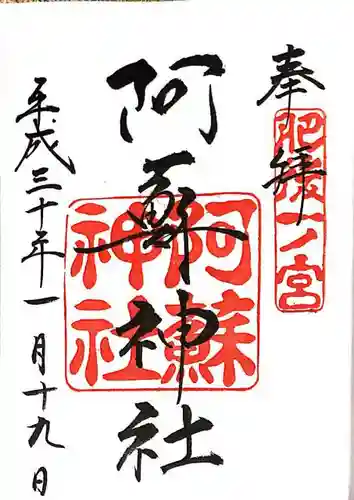 奉拝
肥後一ノ宮
阿蘇神社
阿蘇
神社
平成三十年一月十九日